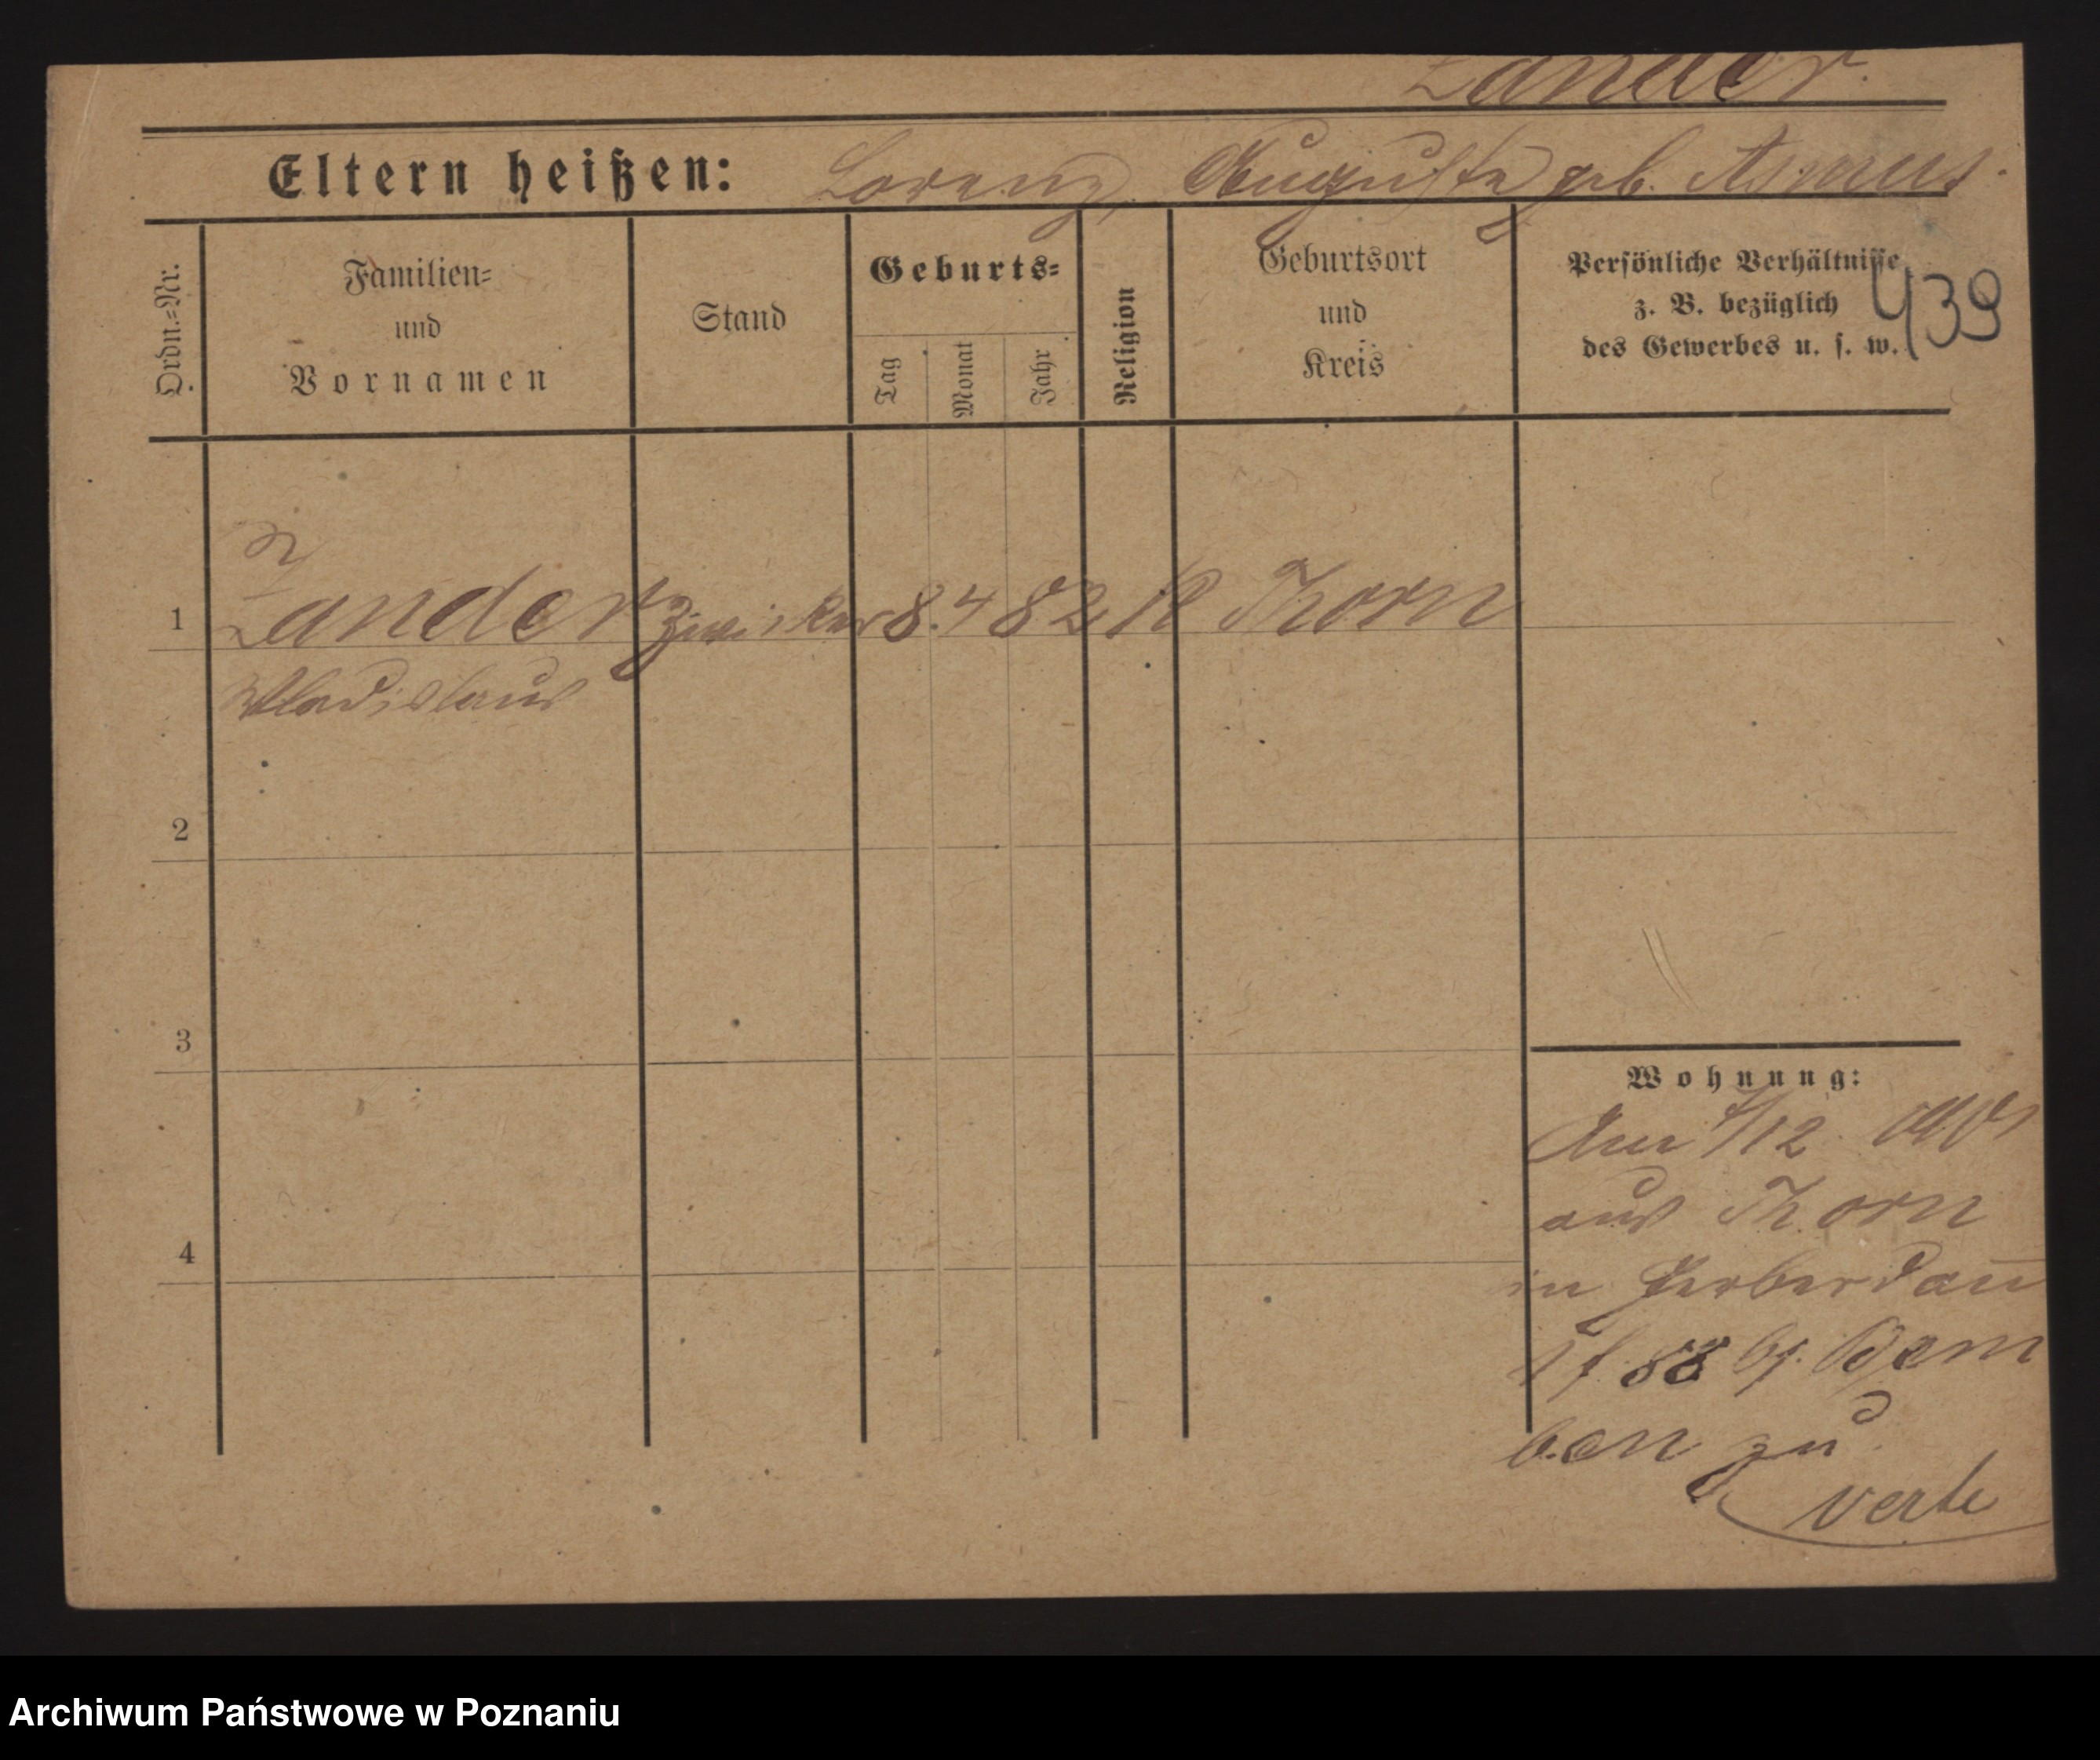 Zander.
Eltern heißen: Lorenz, Auguste geb.
Ordn.=Nr.
Familien=
und
Vornamen
Stand
Geburts=
Tag
Monat
Jahr
Religion
Geburtsort
und
Kreis
Persönliche Verhältnisse
z. B. bezüglich
des Gewerbes u. s. w.
439
1
Zander 8. 4 82 K Thorn
Wladislaus
2
3
4
Wohnung:
/12
aus Thorn
in
88 bj. Dem
ben zu
verte
Archiwum Państwowe w Poznaniu